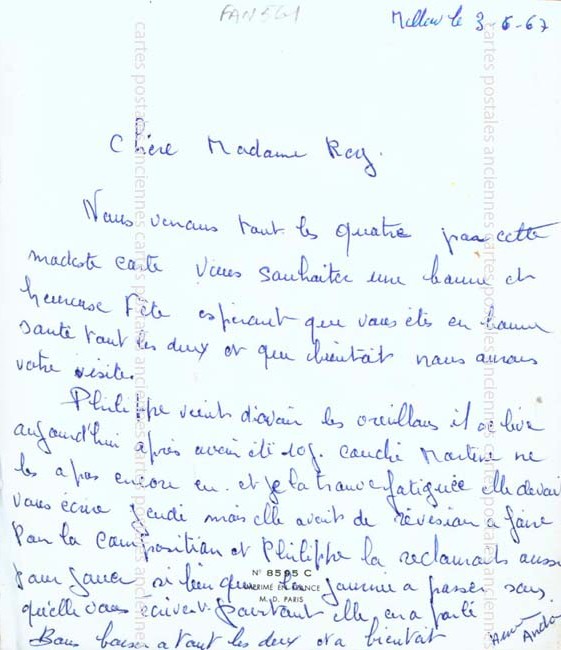 FAN561
Millau le 3-6-67
Chère Madame Rey.
Nous venons tout les quatre par cette
modeste carte vous souhaiter une bonne et
heureuse Fête espérant que vous êtes en bonne
santé tout les deux et que bientôt nous aurons
votre visite.
Philippe vient d'avoir les oreillons il se lève
aujourd'hui après avoir été 10 j. couché Martine ne
les a pas encore eu et je la trouve fatiguée elle devait
vous écrire jeudi mais elle avait de révision a faire
Pour la Composition et Philippe la reclamait aussi
pour jouer si bien que la journée a passer sans
qu'elle vous écrive pourtant elle en a parlé
Bons baiser a tout les deux et a bientôt
André
N° 8595 C
IMPRIMÉ EN FRANCE
M. D. PARIS
cartes postales anciennes cartes postales anciennes
cartes postales anciennes cartes postales anciennes